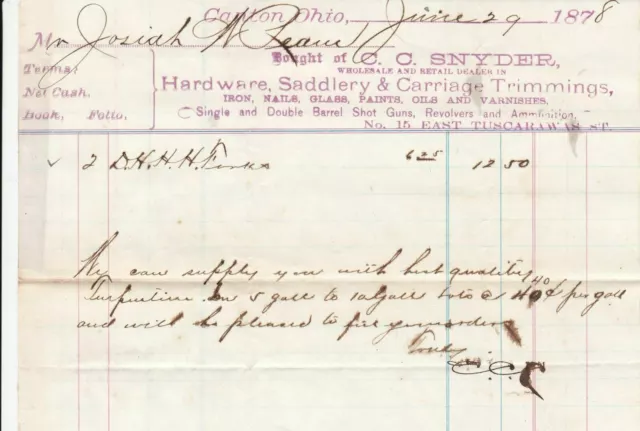 Canton Ohio, June 29 1878
Mr Josiah W
Bought of C. C. SNYDER,
Terms:
WHOLESALE AND RETAIL DEALER IN
Net Cash.
Hardware, Saddlery & Carriage Trimmings,
IRON, NAILS, GLASS, PAINTS, OILS AND VARNISHES,
Book, Folio,
Single and Double Barrel Shot Guns, Revolvers and Ammunition,
No. 15 EAST TUSCARAWAS ST.
2 D.H.H.H. Forks 6 25 12 50
We can supply you with best quality
Turpentine in 5 gall to 10 gall lots @ 40¢ per gall
and will be pleased to fill your orders
Truly
C.C.